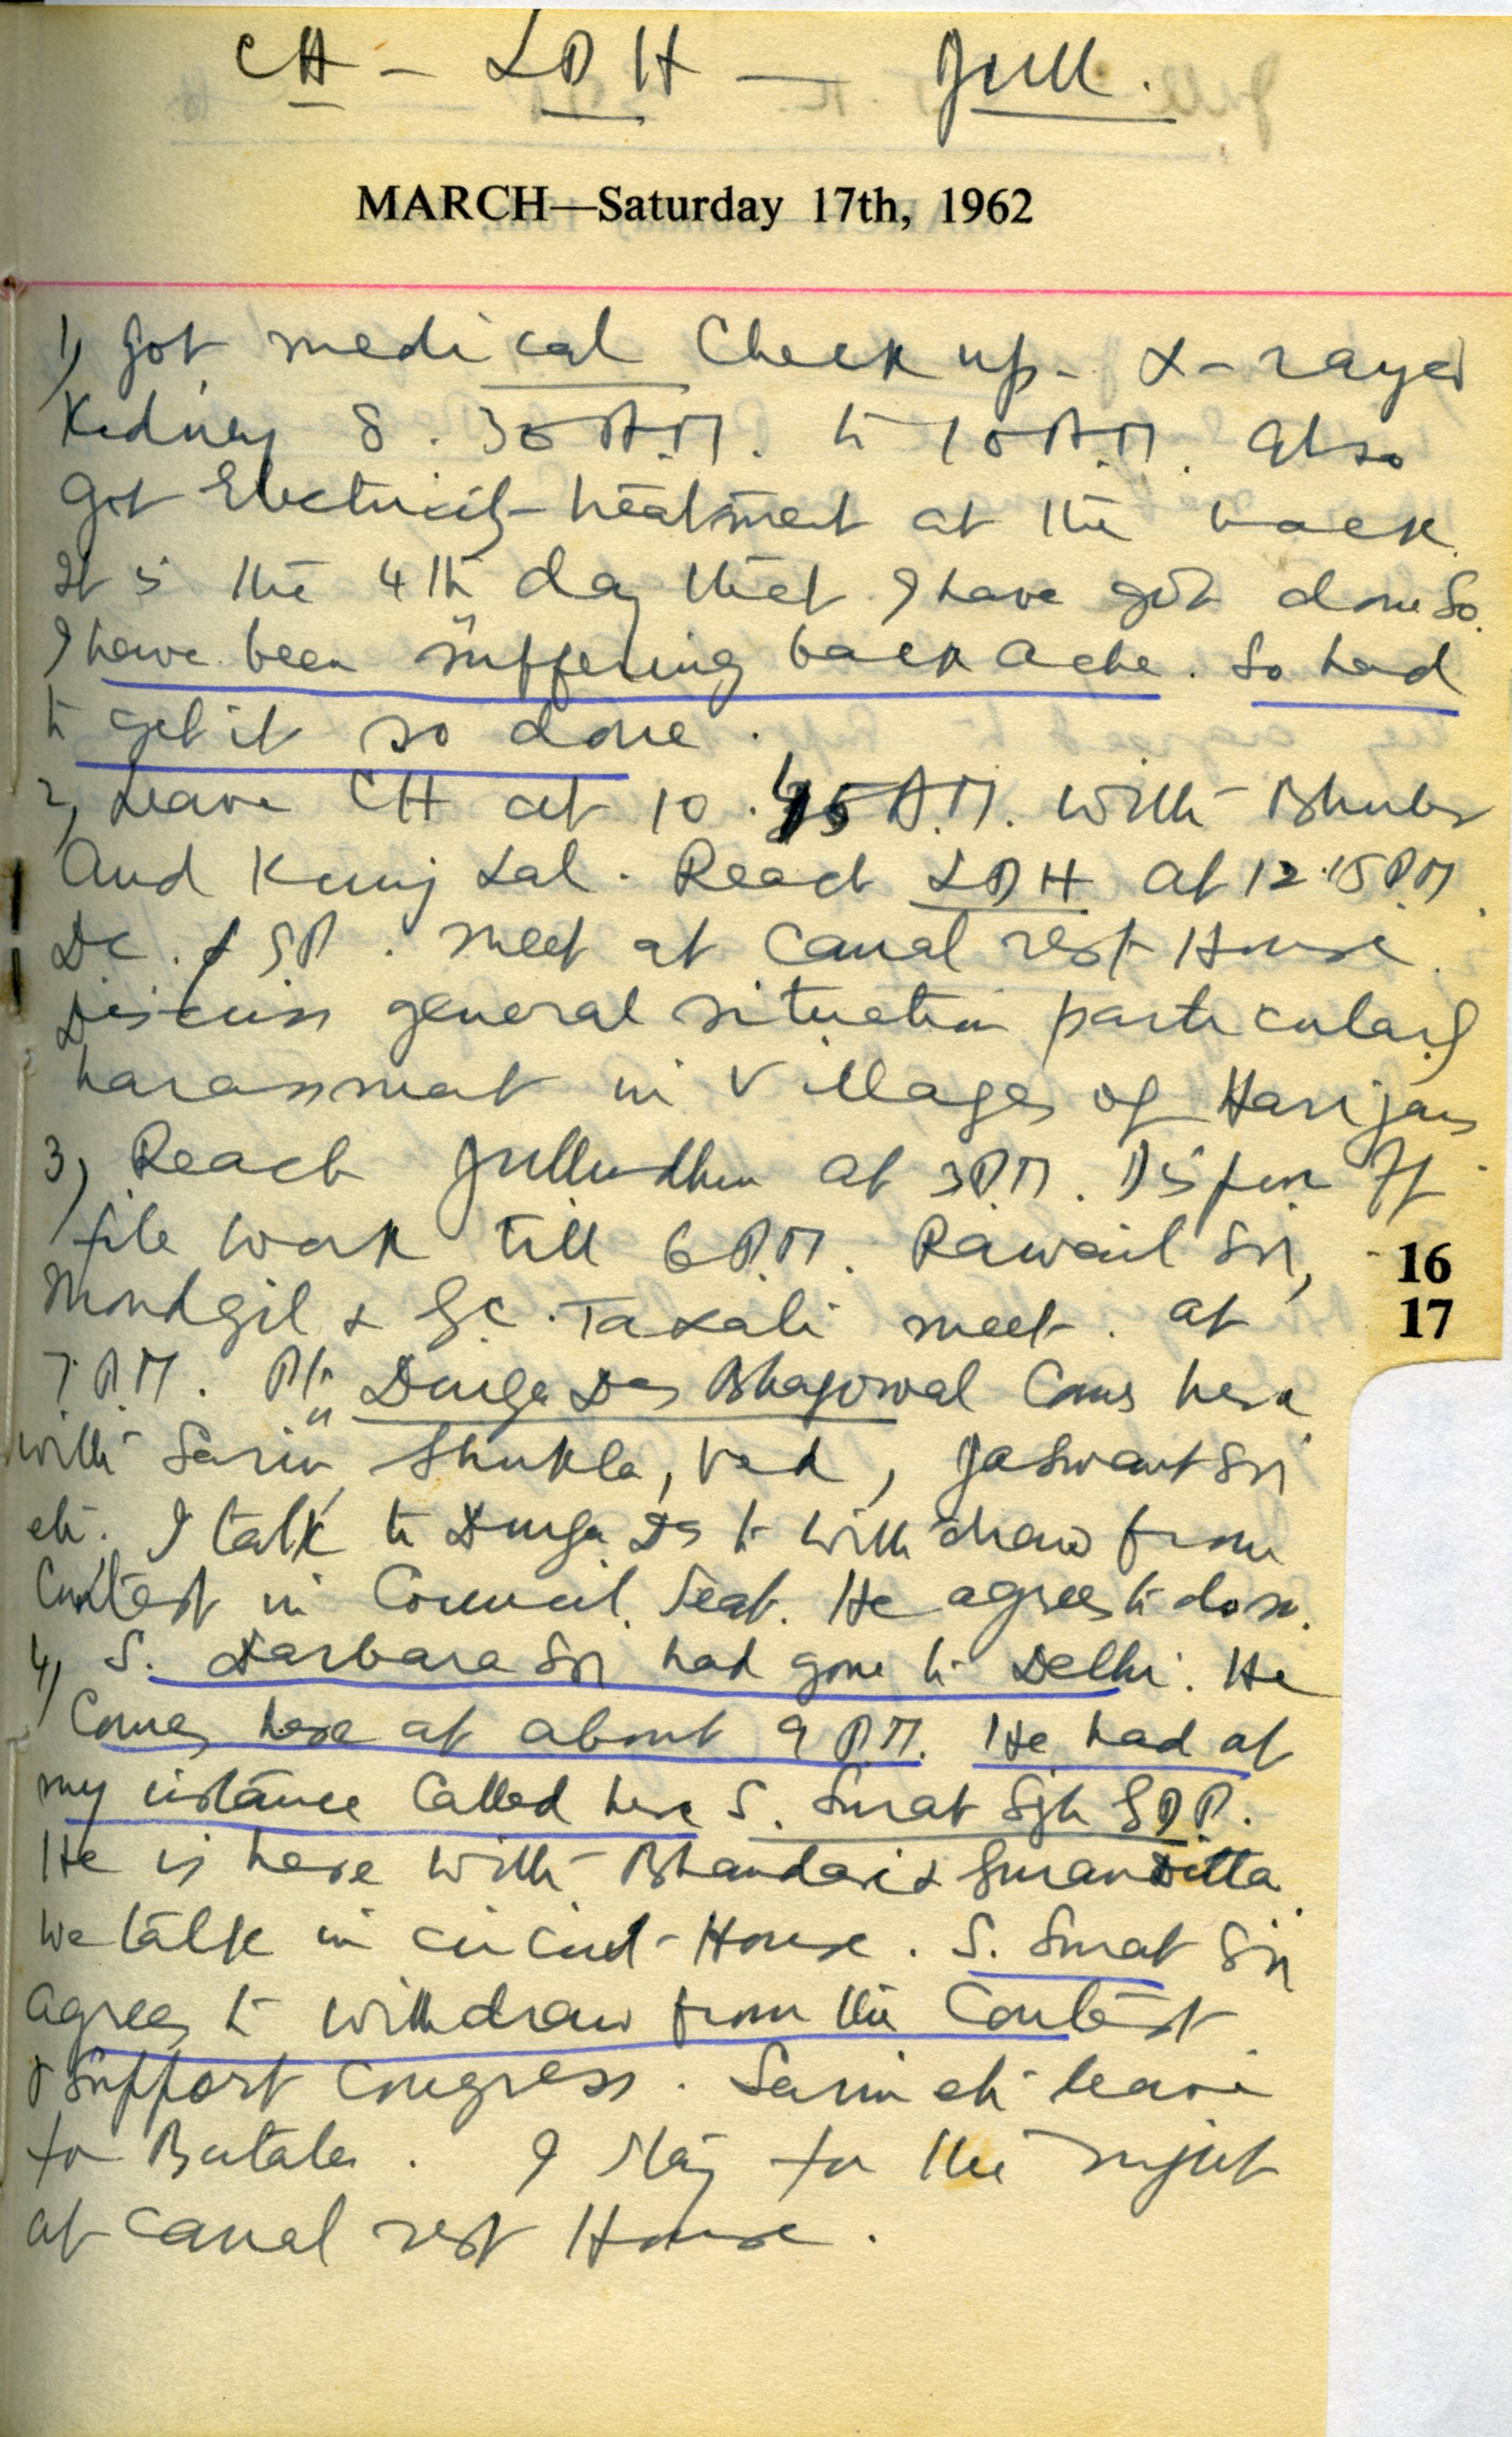 CH - LDH - Jull.
MARCH—Saturday 17th, 1962
1) Got medical Check up - X-rayed
Kidney 8.30 A.M. to 10 A.M. Also
got Electricity treatment at the back.
It is the 4th day that I have got done so.
I have been suffering back ache. So had
to get it so done.
2) Leave CH at 10.45 A.M. with
and Kunj Lal. Reach LDH at 12.15 P.M.
DC. & SP. meet at Canal rest House.
Discuss general situation particularly
harassment in Villages of Harijans
3) Reach Jullundhur at 3 P.M. Dispose off
file work till 6 P.M. Rawail Sn,
Mondgil & G.C. Taxali meet. at
7 P.M. Pt. Durga Das Bhagowal Comes here
with Sarin, Shukla, Ved, Jaswant Sn
etc. I talk to Durga Das to withdraw from
Contest in Council Seat. He agrees to do so.
4) S. Darbara Sn had gone to Delhi. He
Comes here at about 9 P.M. He had at
my instance Called here S. Surat Sgh GDP.
He is here with Bhandari & Guranditta
We talk in circuit-House. S. Surat Sn
agrees to withdraw from the Contest
& support Congress. Sarin etc leave
for Batala. I stay for the night
at Canal rest House.
16
17